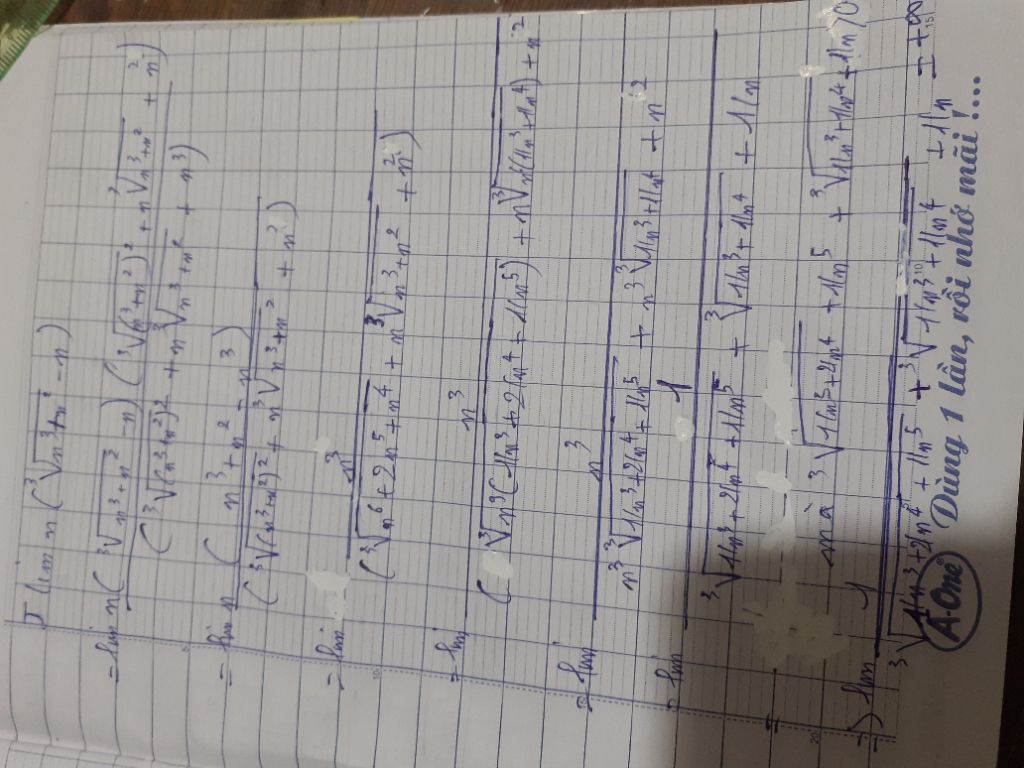 J lim n (³√(n³+n²) - n)
= lim n (³√(n³+n²) - n) (³√(n³+n²)² + n ³√(n³+n²) + n²) / (³√(n³+n²)² + n ³√(n³+n²) + n³)
= lim n (n³+n² - n³) / (³√(n³+n²)² + n ³√(n³+n²) + n²)
= lim n³ / (³√(n⁶+2n⁵+n⁴) + n ³√(n³+n²) + n²)
= lim n³ / (³√(n⁹(1/n³+2/n⁴+1/n⁵)) + n ³√(n⁷(1/n³+1/n⁴)) + n²)
= lim n³ / (n³ ³√(1/n³+2/n⁴+1/n⁵) + n³ ³√(1/n³+1/n⁴) + n²)
= lim 1 / (³√(1/n³+2/n⁴+1/n⁵) + ³√(1/n³+1/n⁴) + 1/n)
=
mà ³√(1/n³+2/n⁴+1/n⁵) + ³√(1/n³+1/n⁴) + 1/n > 0
=) lim 1 / (³√(1/n³+2/n⁴+1/n⁵) + ³√(1/n³+1/n⁴) + 1/n) = +∞
A-One Dùng 1 lần, rồi nhớ mãi !....